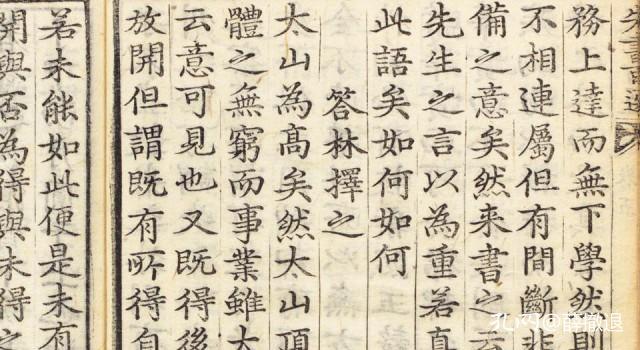 務上達而無下學然則
不相連屬但有間斷非
備之意矣然来書之云
先生之言以為重若真
此語矣如何如何
答林擇之
太山為髙矣然太山頂
體之無窮而事業雖大
云意可見也又既得後
放開但謂既有所得自
若未能如此便是未有
開與否為得與未得之
孔网@薛撤退